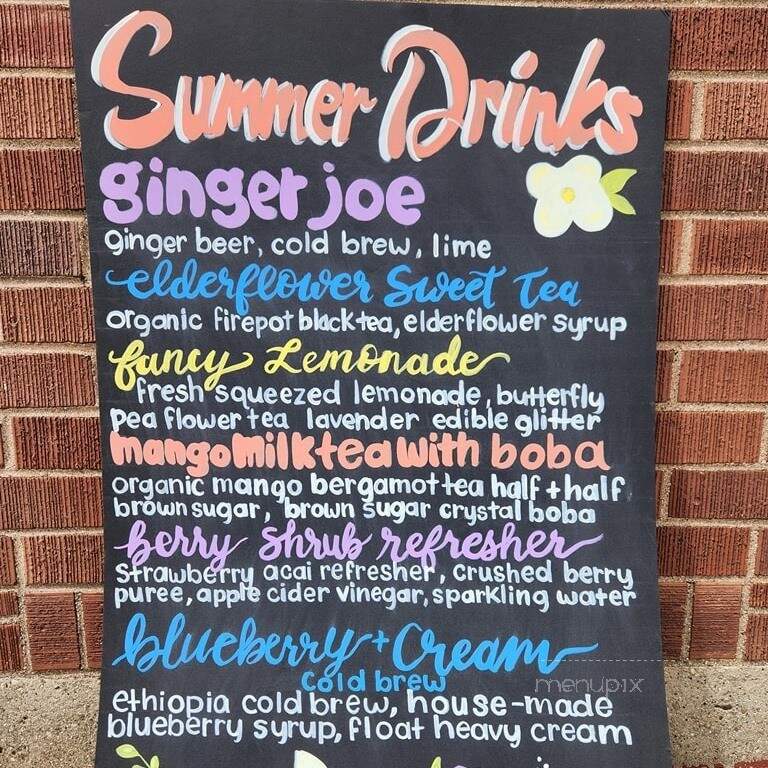 Summer Drinks
ginger joe
ginger beer, cold brew, lime
elderflower Sweet Tea
organic firepot black tea, elderflower syrup
fancy Lemonade
fresh squeezed lemonade, butterfly
pea flower tea lavender edible glitter
mango milk tea with boba
organic mango bergamot tea half + half
brown sugar, brown sugar crystal boba
berry shrub refresher
Strawberry acai refresher, crushed berry
puree, apple cider vinegar, sparkling water
blueberry + Cream
Cold brew
menupix
ethiopia cold brew, house-made
blueberry syrup, float heavy cream